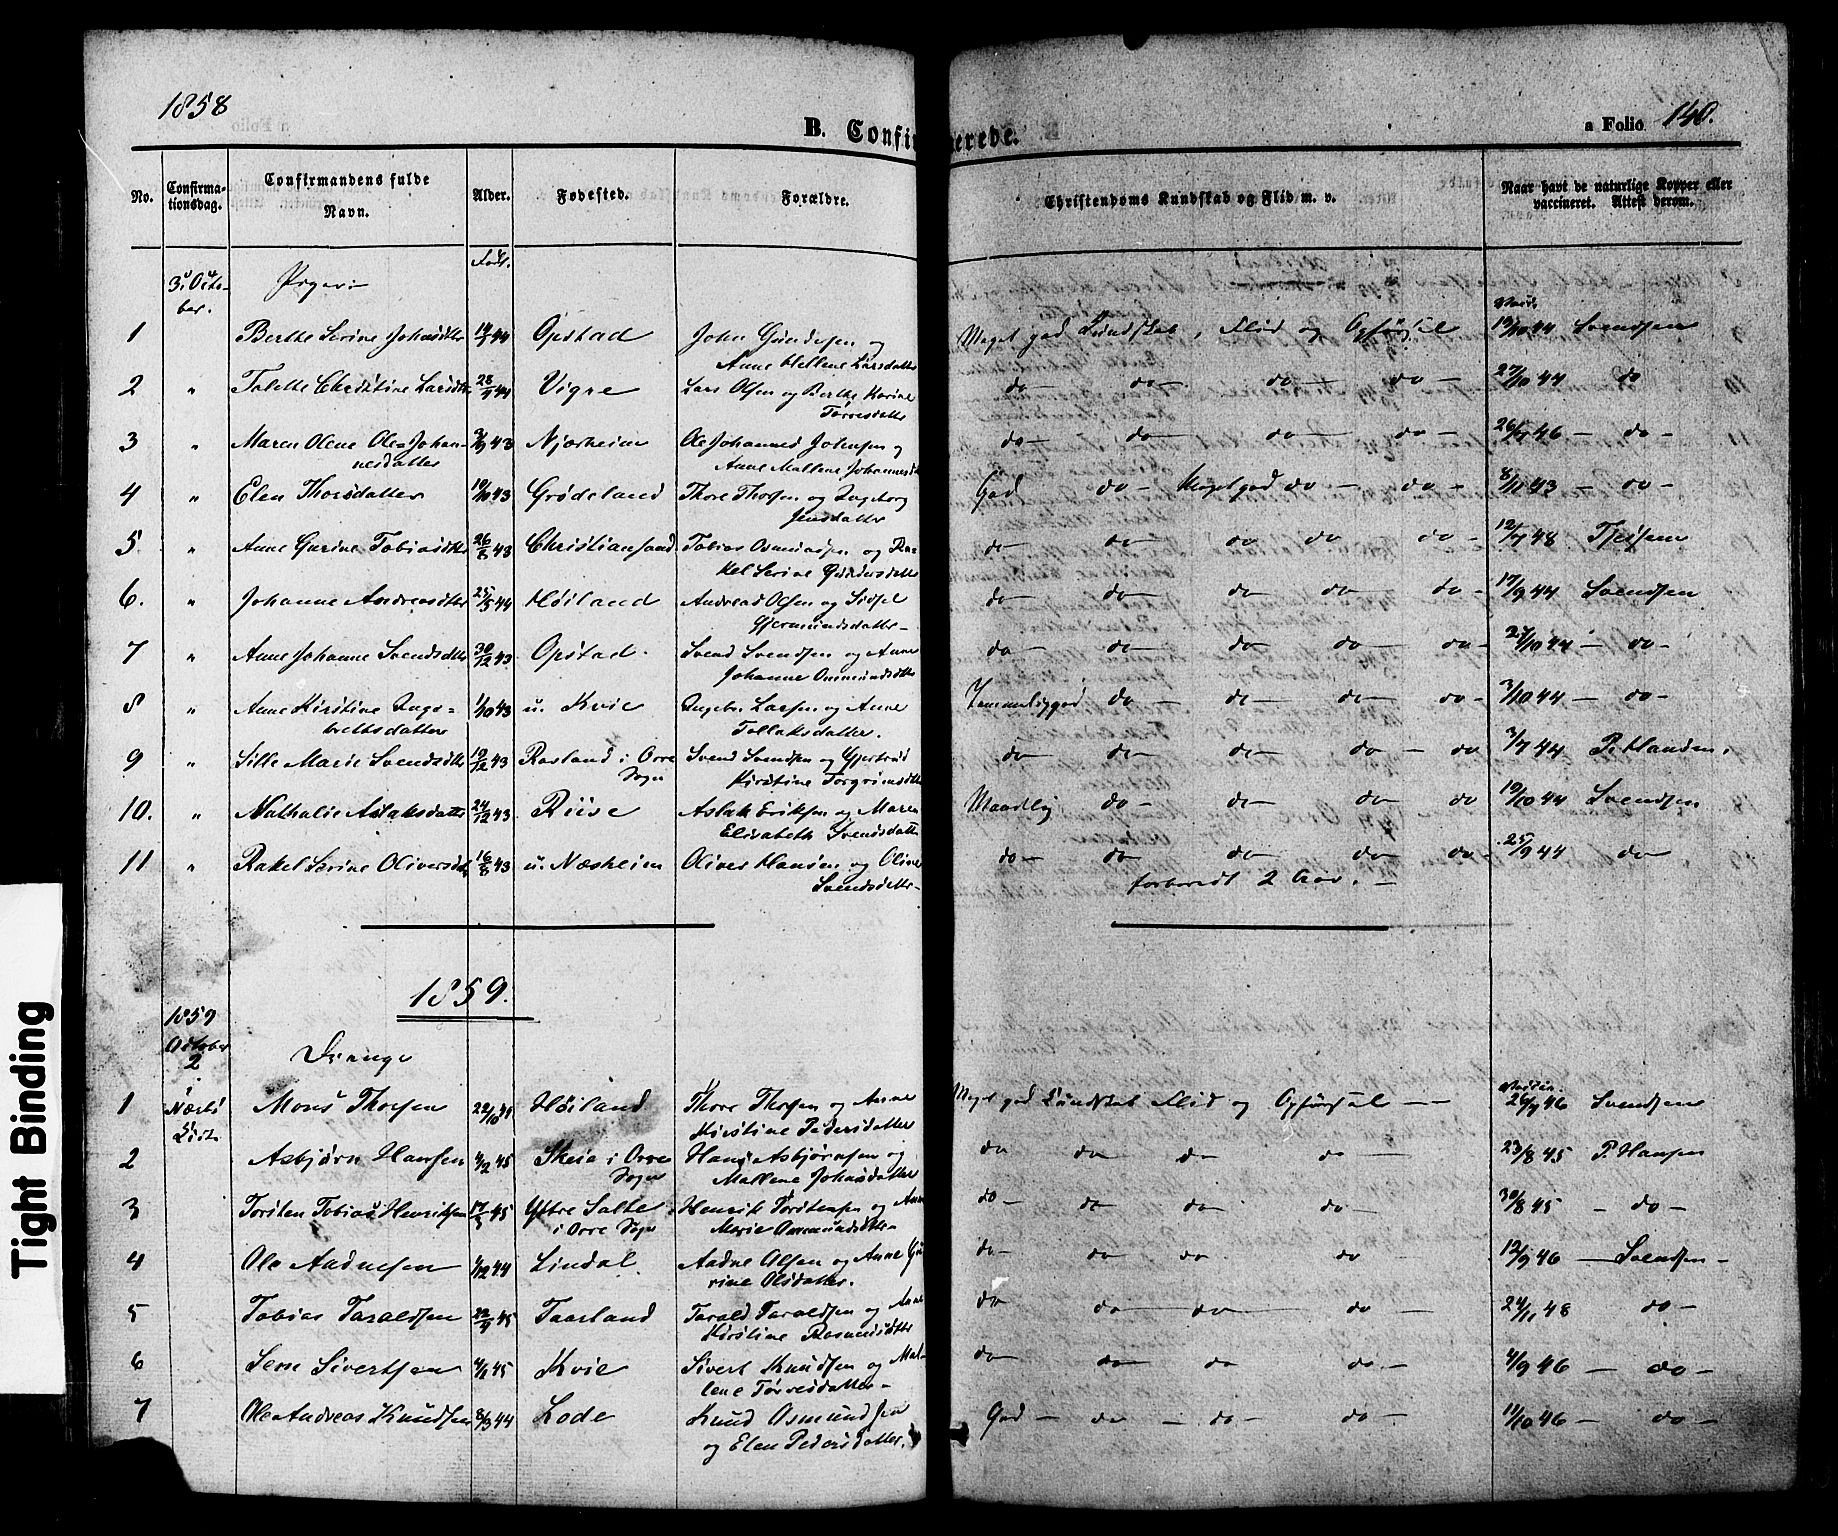 1858
B. Confirmerede.
a Folio 140.
No. Confirmationsdag. Confirmandens fulde Navn. Alder. Fødested. Forældre. Christendoms Kundskab og Flid m. v. Naar havt de naturlige Kopper eller vaccineret. Attest derom.
3. October. Piger Født. Vacc.
1 Berthe Serine Johnsdtr 44 Opstad John Gundersen og Meget god Kundskab, Flid og Opførsel 19/10 44 Svendsen
Anne Hellene Larsdatter
2 " Talette Christine Larsdtr 28/ 44 Vigre Lars Olsen og Berthe Karine do — do — do — do — 27/10 44 do
Tørresdatter
3 " Maren Olene Olea Johan- 3/9 43 Njærheim Ole Johannes Johnsen og do — do — do — do — 26/7 46 — do —
nesdatter Anne Mallene Johannesdtr
4 " Elen Thorsdatter 19/10 43 Grødeland Thore Thorsen og Ingeborg God do — Meget god do — do — 8/11 43 — do —
Jensdatter
5. " Anne Gurine Tobiasdtr 26/8 43 Christiansand Tobias Osmundsen og Ra- do — do — do do do — 12/7 48 Tjetsem
kel Serine Gundersdatter
6. " Johanne Andreasdtr 25/5 44 Høiland Andreas Olsen og Sidsel do — do do do — do — 17/9 44 Svendsen
Gjermundsdatter —
7 " Anne Johanne Svendsdtr 30/12 43 Opstad. Svend Svendsen og Anne do — do — do do — do — 27/10 44 — do —
Johanne Ommundsdtr
8 " Anne Kirstine Inge- 1/10 43 u. Kvie Ingebr. Larsen og Anne Temmeliggod do — do — do — do — 3/10 44 — do —
bretsdatter Tollaksdatter.
9 " Sille Marie Svendsdtr 19/12 43 Rosland i Orre Svend Svendsen og Gjertrud do — do — do — do — do 3/7 44 P. Hansen.
Sogn Kirstine Torgrimsdtr
10. " Nathalie Aslaksdatter 24/12 43 Riise Aslak Eriksen og Maren Maadelig do — do — do do 19/10 44 Svendsen
Elisabeth Svendsdatter
11 " Rakel Serine Oliversdtr 16/8 43 u. Næsheim Oliver Hansen og Olive do — do do — do — do — 25/9 44 do
Svendsdatter — forberedt 2 Aar. —
1859.
1859
October
2 Drenge
i Vaccin.
1 Nærbø Mons Thorsen 22/10 44 Høiland Thore Thorsen og Anne Meget god Kundskab Flid og Opførsel — — 26/7 46 Svendsen
Kirke. Kirstine Pedersdatter
2 Asbjørn Hansen 4/2 45 Skeie i Orre Hans Asbjørnsen og do do — do — do — 23/8 45 P. Hansen
Sogn Mallene Johnsdatter
3 Torsten Tobias Henriksen 17/3 45 Yttre Salte Henrik Torstensen og Anne do — do — do — do — 30/8 45 — do —
i Orre Sogn Marie Ommundsdtr —
4 Ole Aadnesen 1/12 44 Lindal. Aadne Olsen og Anne Gu- do — do do — do 12/9 46 — Svendsen —
rine Olsdatter.
5 Tobias Taraldsen 22/4 45 Taarland Tarald Taraldsen og Anne do do — do — do — 24/11 48 do —
Kirstine Rasmusdtr
6 Sem Sivertsen 4/1 45 Kvie Sivert Knudsen og Mal- do do — do do — 4/9 46 — do —
lene Tørresdatter —
7 Ole Andreas Knudsen 8/3 44 Lode Knud Osmundsen God — do — do — do — 11/10 46 — do —
og Elen Pedersdatter.
Tight Binding